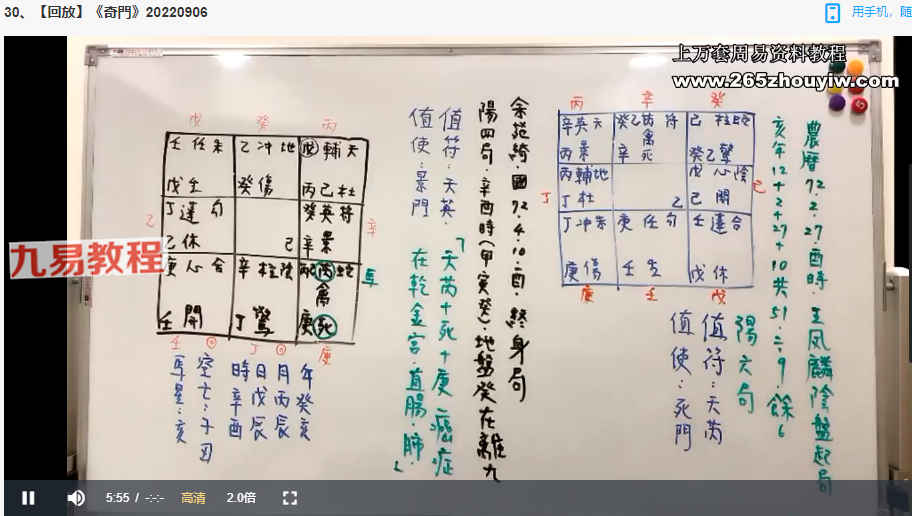 30、【回放】《奇門》20220906
用手机，随
上万套周易资料教程
www.265zhouyiw.com
九易教程
農曆72.2.27.酉時.王凤麟陰盤起局
亥年12+2+27+10共51.÷9.餘6
陽六局
值符:天芮
值使:死門
丙 辛 癸
辛英天 癸乙芮符 己柱蛇
禽
丙景 辛死 癸乙驚
丙輔地 戊心陰
丁 丁杜 乙 己開 己
丁冲朱 庚任勾 壬蓬合
庚傷 壬生 戊休
庚 壬 戊
國72.4.10.酉.終身局
陽四局.辛酉時(甲寅癸).地盤癸在離九
值符:天英.
值使:景門
「天芮+死+庚 癌症
在乾金宮.直腸.肺.」
戊 癸 丙
壬任朱 乙冲地 戊輔天
戊生 癸傷 丙己杜
丁蓬勾 癸英符
乙 乙休 己 辛景 辛
庚心合 辛柱陰 丙芮蛇
禽
壬開 丁驚 庚死
馬
壬 丁 庚
年癸亥
月丙辰
日戊辰
時辛酉
空亡:子丑
馬星:亥
5:55 / -:-:-
高清
2.0倍